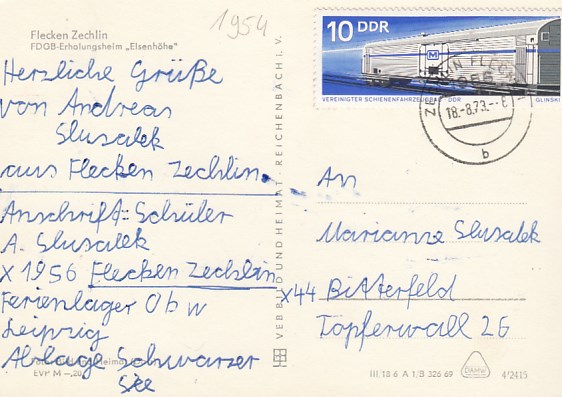 1954
Flecken Zechlin
FDGB-Erholungsheim „Elsenhöhe"
Herzliche Grüße
von Andreas
Slusalek
aus Flecken Zechlin.
Anschrift: Schüler
A. Slusalek
X 1956 Flecken Zechlin
Ferienlager Obw
Leipzig
Ablage Schwarzer
See
EVP M –,20
VEB BILD UND HEIMAT · REICHENBACH I. V.
10 DDR
M
VEREINIGTER SCHIENENFAHRZEUGBAU · DDR
GLINSKI
FLECK
18.-8.73.-6
b
An
Marianne Slusalek
X44 Bitterfeld
Töpferwall 26
III/18 6 A 1/B 326 69
4²2415